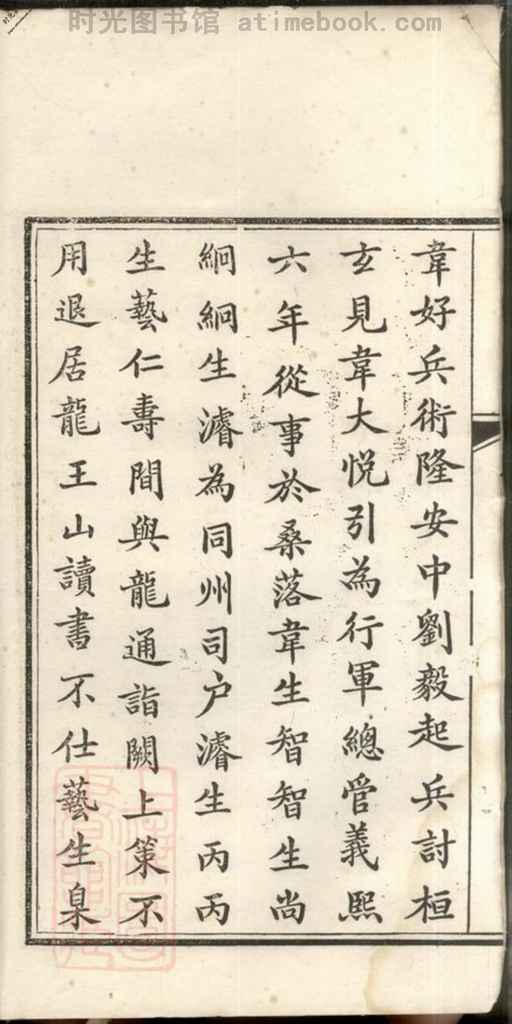 时光图书馆 atimebook.com
韋好兵術隆安中劉毅起兵討桓
玄見韋大悅引為行軍總管義熙
六年從事於桑落韋生智智生尚
絅絅生濬為同州司户濬生丙丙
生藝仁壽間與龍通詣闕上策不
用退居龍王山讀書不仕藝生臬